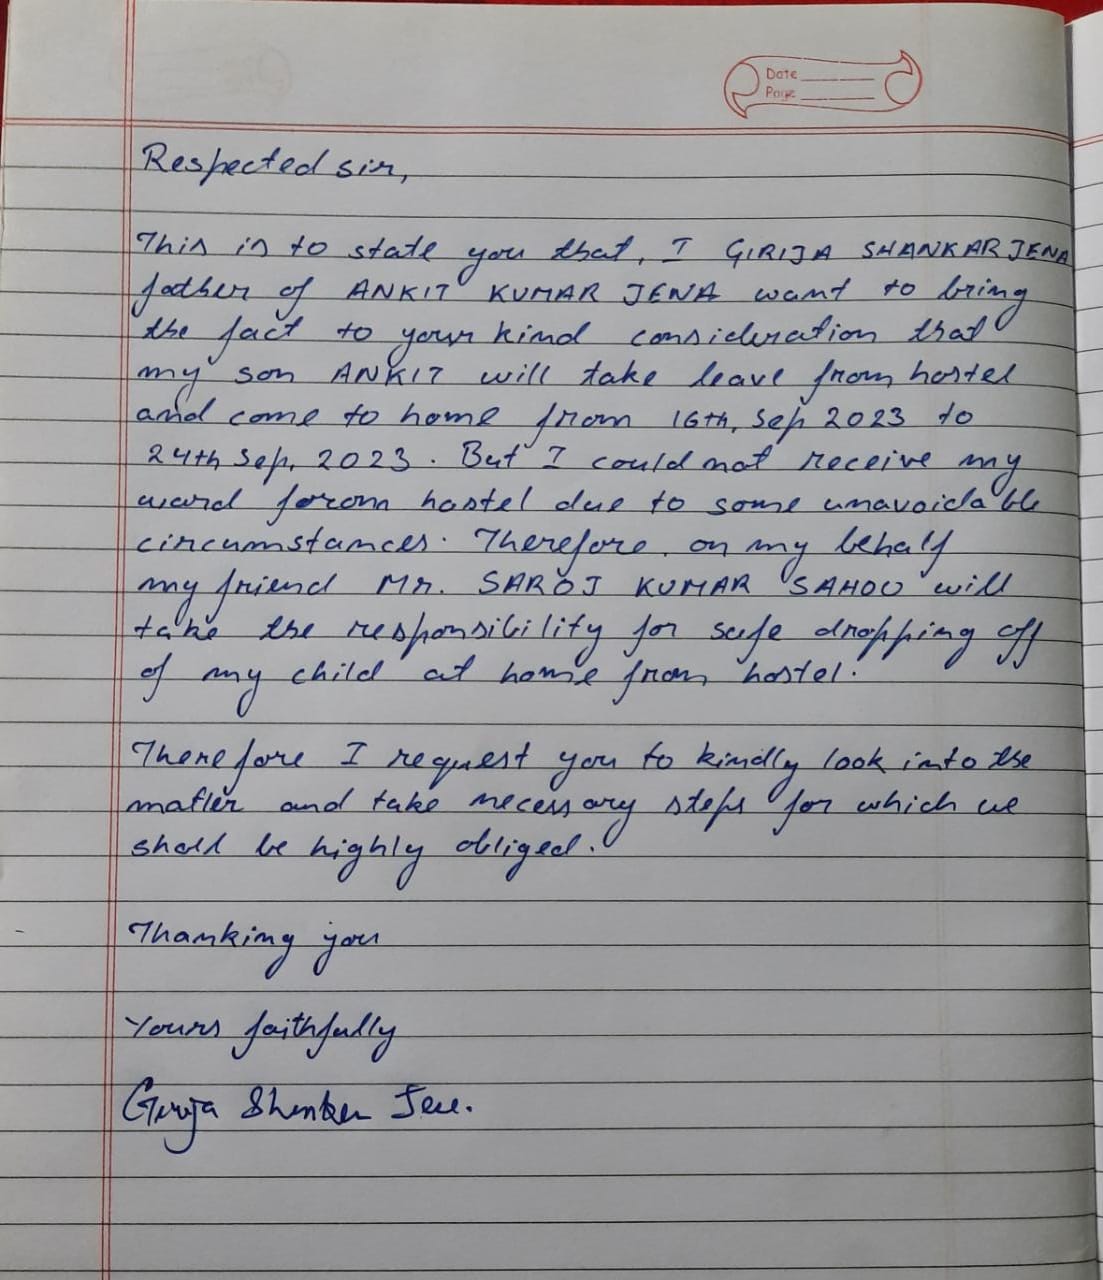 Date
Page
Respected sir,
This is to state you that, I GIRIJA SHANKAR JENA
father of ANKIT KUMAR JENA want to bring
the fact to your kind consideration that
my son ANKIT will take leave from hostel
and come to home from 16th, Sep 2023 to
24th Sep, 2023. But I could not receive my
ward forom hostel due to some unavoidable
circumstances. Therefore, on my behalf
my friend Mr. SAROJ KUMAR SAHOO will
take the responsibility for safe dropping off
of my child at home from hostel.
Therefore I request you to kindly look into the
matter and take necessary steps for which we
shall be highly obliged.
Thanking you
Yours faithfully
Girija Shankar Jena.